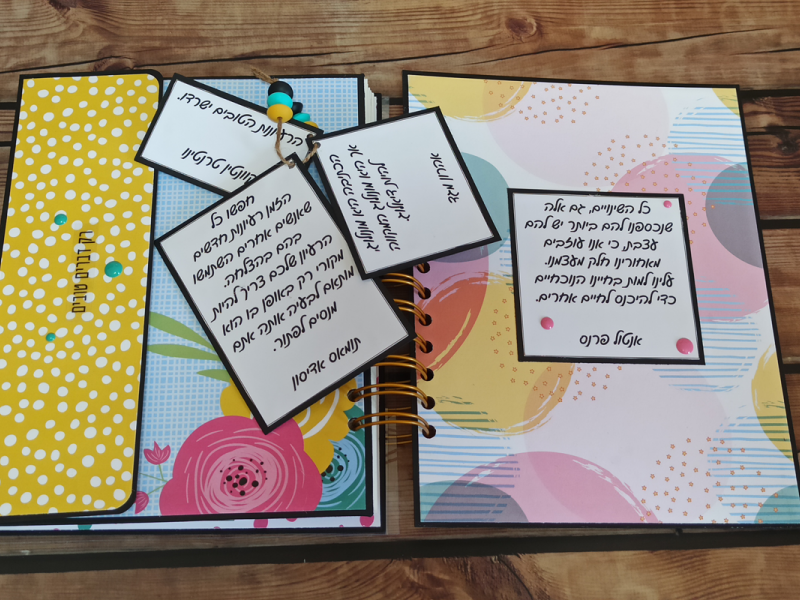 רק דברים טובים
הרעיונות הטובים ישרדו.
קוונטין טרנטינו
חפשו כל
הזמן רעיונות חדשים
שאנשים אחרים השתמשו
בהם בהצלחה.
הרעיון שלכם צריך להיות
מקורי רק באופן בו הוא
מותאם לבעיה אותה אתם
מנסים לפתור.
תומאס אדיסון
כל השינויים, גם אלה
שנכספנו להם ביותר יש להם
עצבת, כי אנו עוזבים
מאחורינו חלק מעצמנו.
עלינו למות בחיינו הנוכחיים
כדי להיכנס לחיים אחרים.
אנטול פרנס